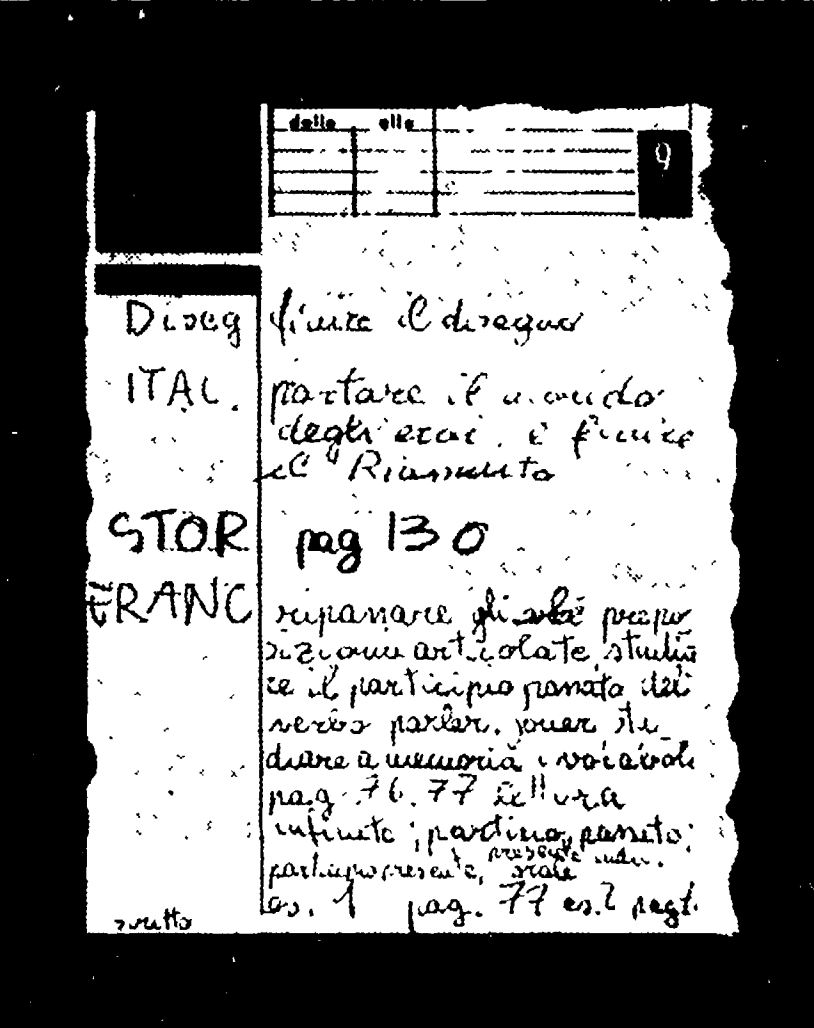 dalle alle
9
Diseg finire il disegno
ITAL. portare il mondo
degli eroi. e finire
il Riassunto
STOR pag 130
FRANC ripassare gli prepo
sizioni articolate, studia
re il participio passato del
verbo parler, jouer stu
diare a memoria i vocaboli
pag. 76. 77 lettura
infinito; partino, passato;
presente indic.
participio presente, orale
scritto es. 1 pag. 77 es. 2 pag